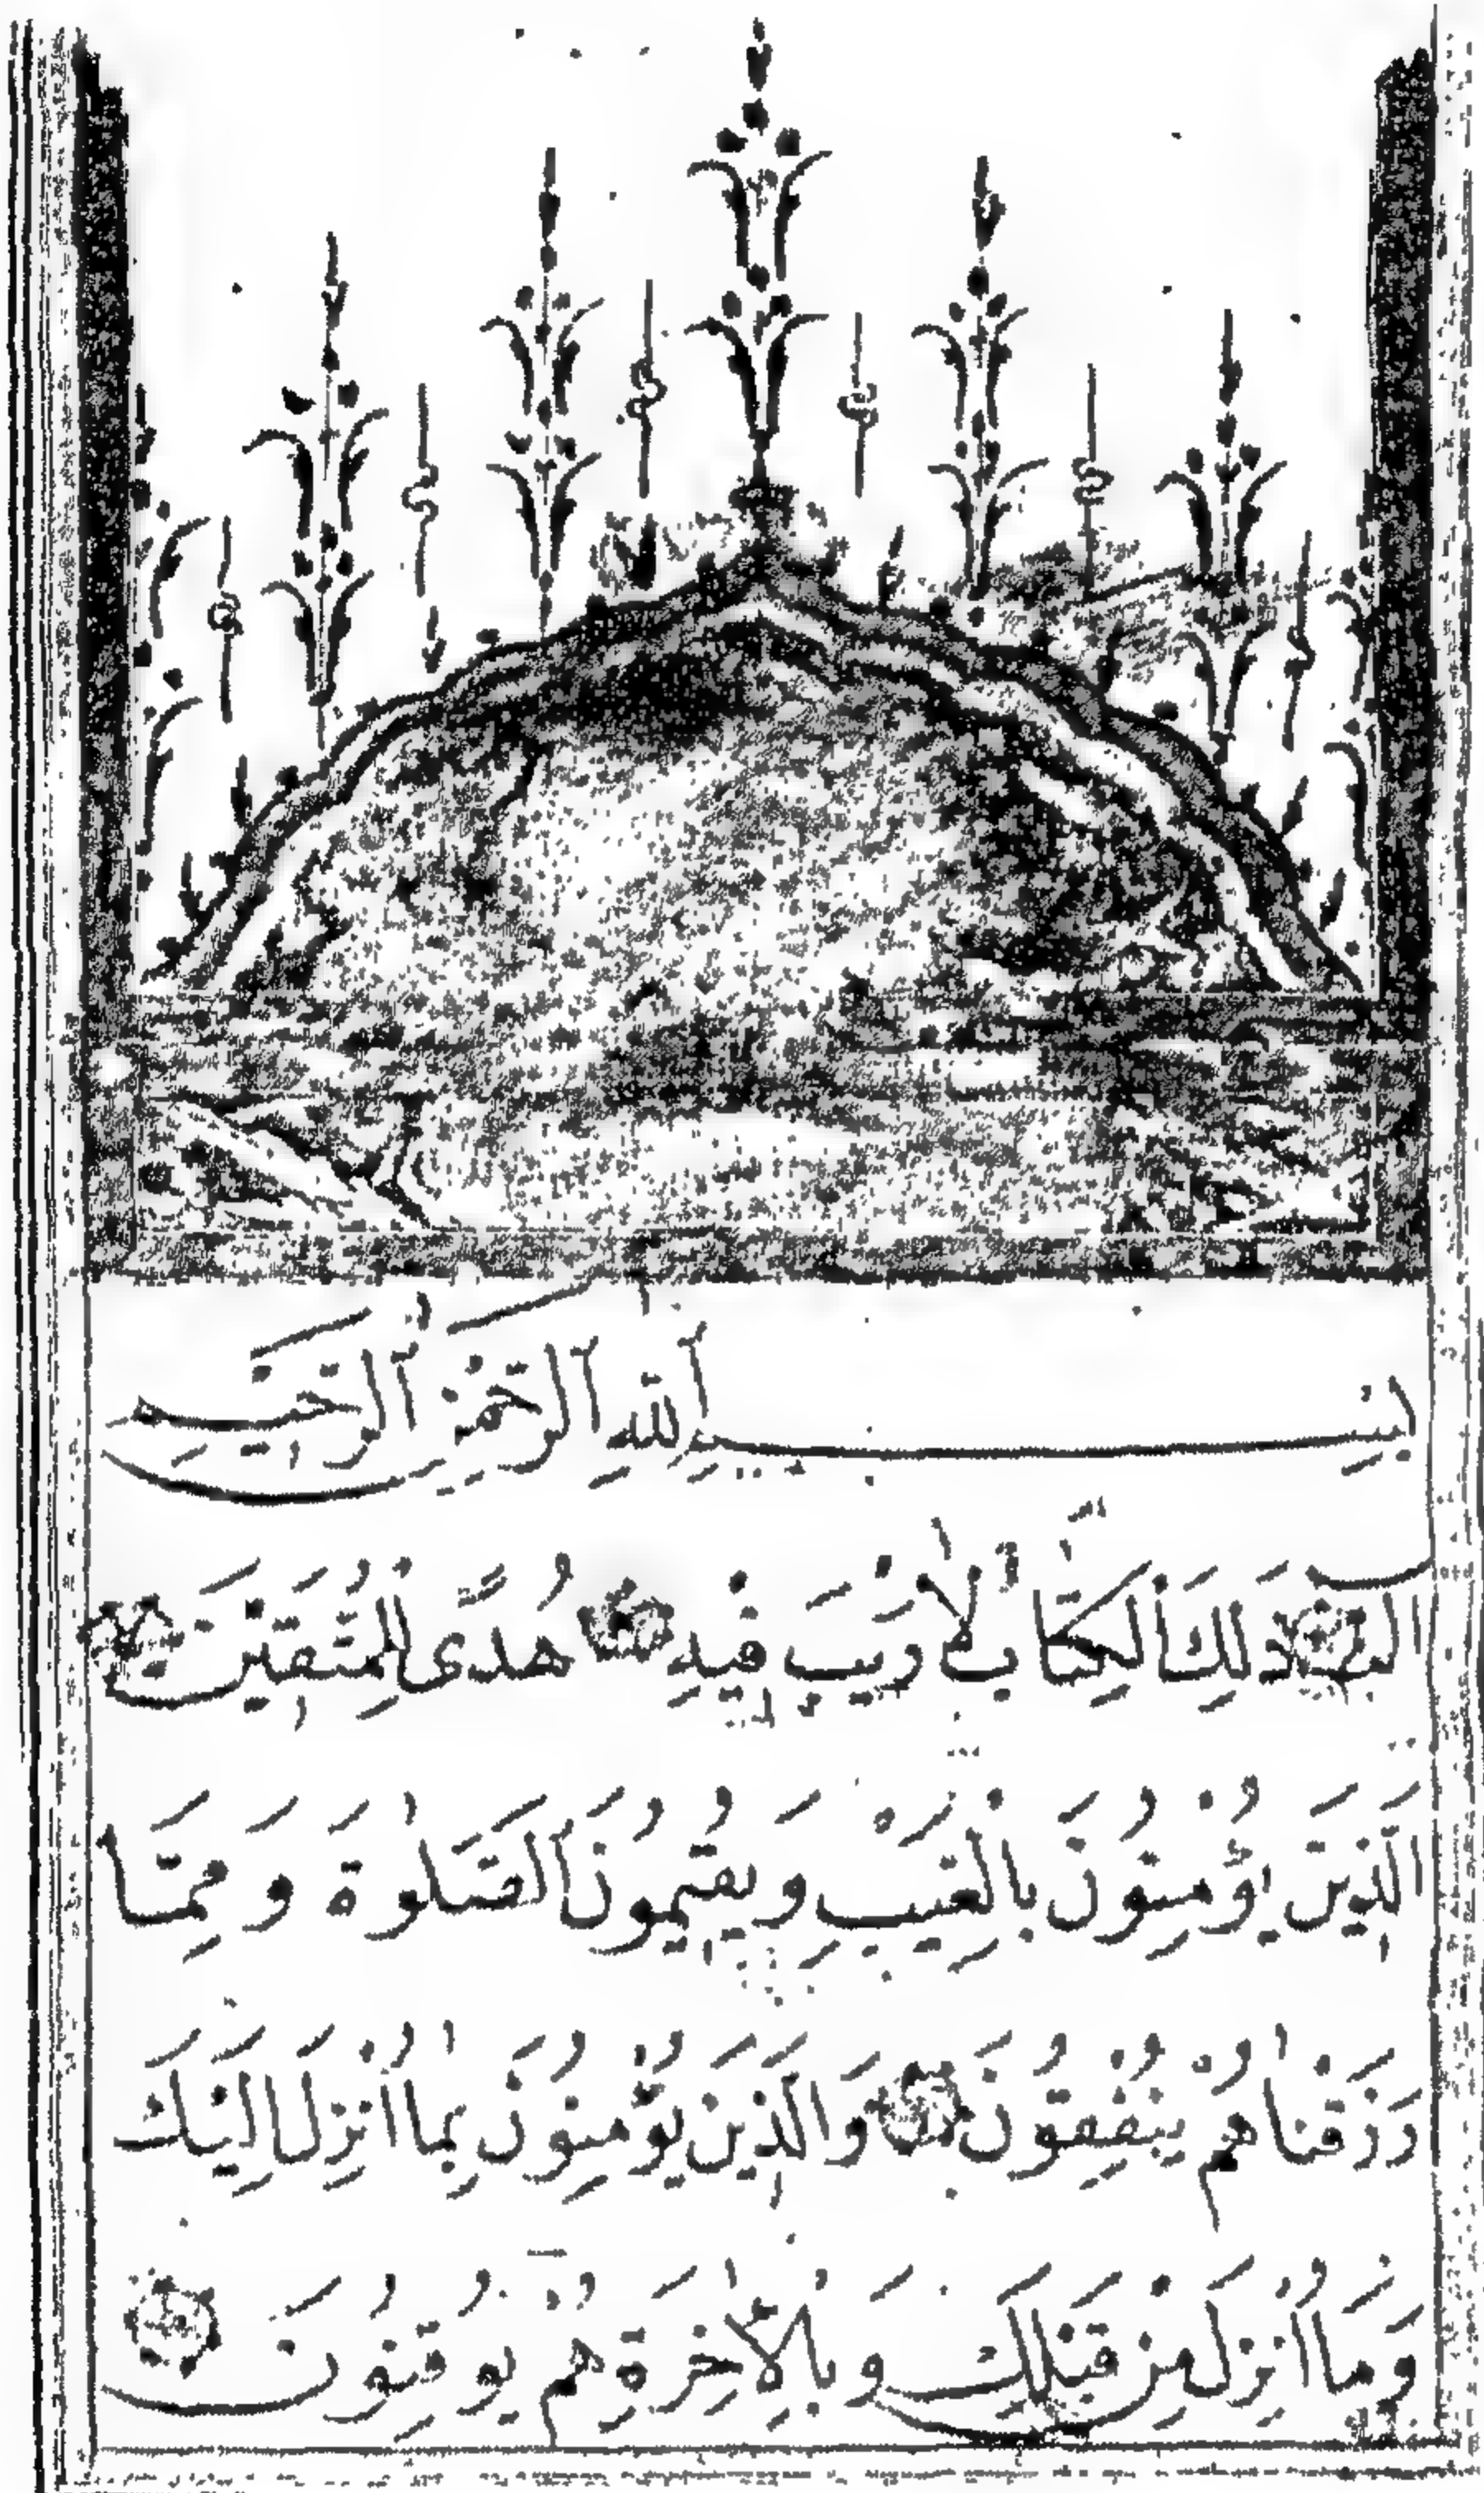 بِسْمِ اللَّهِ الرَّحْمٰنِ الرَّحِيمِ
الم ذٰلِكَ الْكِتَابُ لَا رَيْبَ فِيهِ هُدًى لِلْمُتَّقِينَ
الَّذِينَ يُؤْمِنُونَ بِالْغَيْبِ وَيُقِيمُونَ الصَّلٰوةَ وَمِمَّا
رَزَقْنَاهُمْ يُنْفِقُونَ وَالَّذِينَ يُؤْمِنُونَ بِمَا أُنْزِلَ إِلَيْكَ
وَمَا أُنْزِلَ مِنْ قَبْلِكَ وَبِالْاٰخِرَةِ هُمْ يُوقِنُونَ